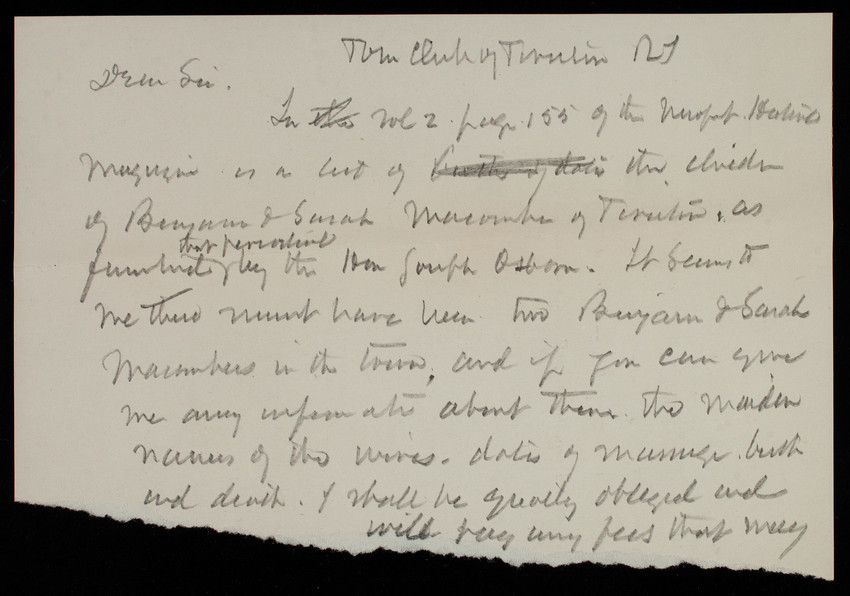 Town Clerk of Tiverton RI
Dear Sir.
In the vol 2. page 155 of the Newport Historical
Magazine is a list of births of dates the children
of Benjamin & Sarah Macomber of Tiverton, as
that periodical
furnished by the Hon Joseph Osborn. It seems to
me there must have been two Benjamin & Sarah
Macombers in the town, and if you can give
me any information about them the maiden
names of the wives. dates of marriage. birth
and death. I shall be greatly obliged and
will pay any fees that may